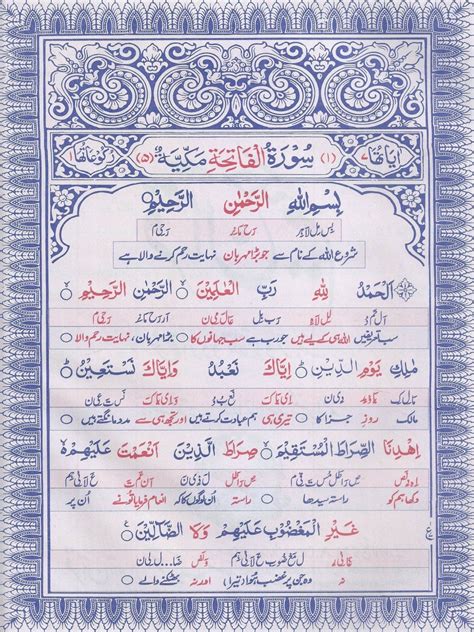 اٰیاتُھَا ۷ (۱) سُوْرَةُ الْفَاتِحَةِ مَكِّيَّةٌ (۵) رکوعاتھا
بِسْمِ اللّٰهِ الرَّحْمٰنِ الرَّحِيْمِ
بِس مِل لاہِ رَح مَا نِر رَ حِی م
شروع اللہ کے نام سے جو بڑا مہربان نہایت رحم کرنے والا ہے
اَلْحَمْدُ لِلّٰهِ رَبِّ الْعٰلَمِيْنَ ○ الرَّحْمٰنِ الرَّحِيْمِ ○
سب تعریفیں اللہ ہی کے لیے ہیں جو رب ہے سب جہانوں کا بڑا مہربان، نہایت رحم والا
مٰلِكِ يَوْمِ الدِّيْنِ ○ اِيَّاكَ نَعْبُدُ وَاِيَّاكَ نَسْتَعِيْنُ ○
مالک روزِ جزا کا تیری ہی ہم عبادت کرتے ہیں اور تجھ ہی سے مدد مانگتے ہیں
اِهْدِنَا الصِّرَاطَ الْمُسْتَقِيْمَ ○ صِرَاطَ الَّذِيْنَ اَنْعَمْتَ عَلَيْهِمْ
دکھا ہم کو راستہ سیدھا راستہ اُن لوگوں کا انعام فرمایا تُو نے اُن پر
غَيْرِ الْمَغْضُوْبِ عَلَيْهِمْ وَلَا الضَّآلِّيْنَ ○
نہ وہ جن پر غضب ہوا (تیرا) اور نہ بھٹکنے والے